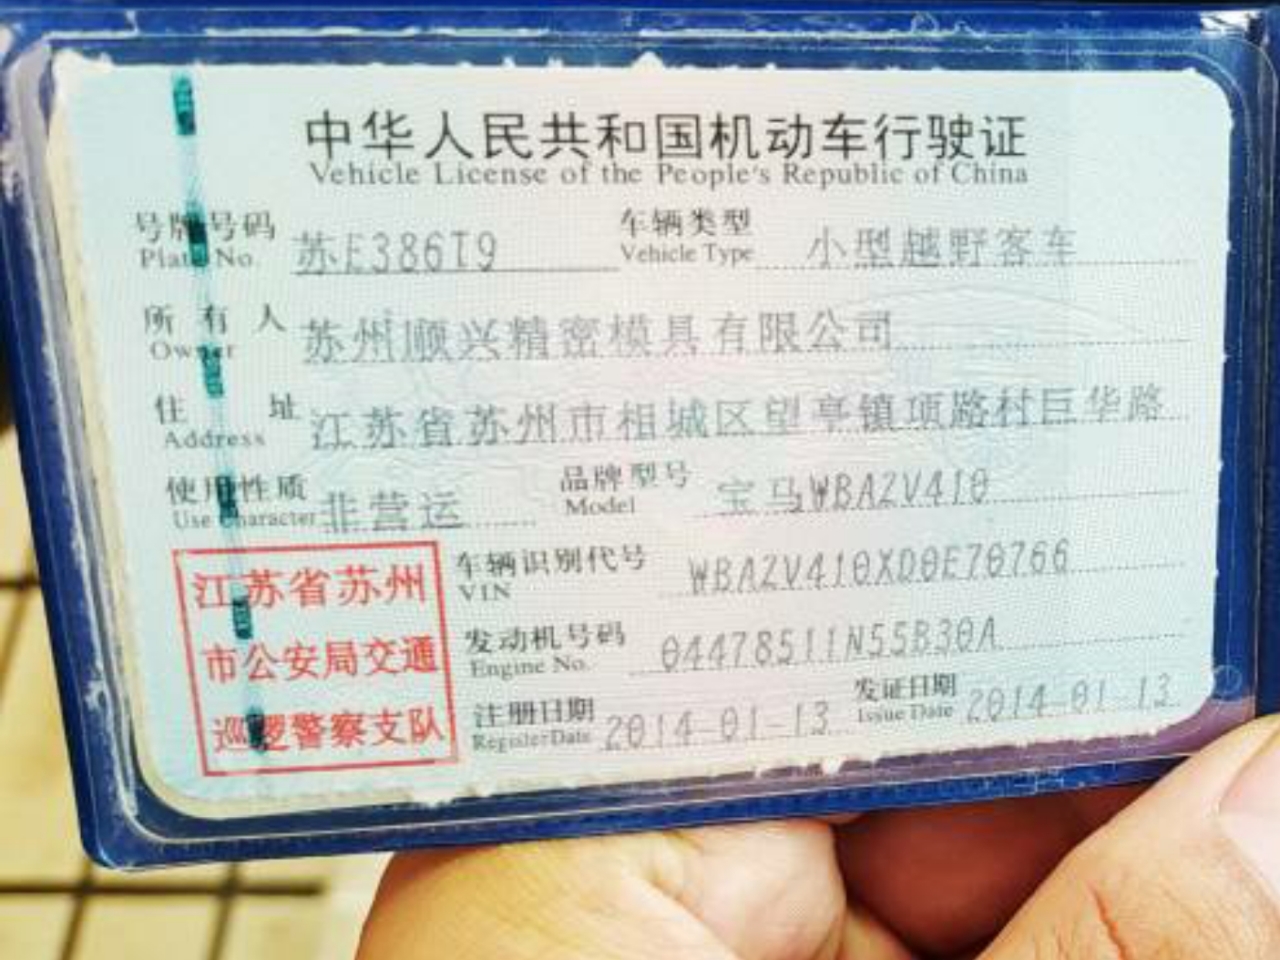 中华人民共和国机动车行驶证
Vehicle License of the People's Republic of China
号牌号码 苏E386T9 车辆类型 小型越野客车
Plate No. Vehicle Type
所有人 苏州顺兴精密模具有限公司
Owner
住址 江苏省苏州市相城区望亭镇项路村巨华路
Address
使用性质 非营运 品牌型号 宝马WBAZV410
Use Character Model
车辆识别代号 WBAZV410XD0E70766
VIN
发动机号码 04478511N55B30A
Engine No.
注册日期 2014-01-13 发证日期 2014-01-13
Register Date Issue Date
江苏省苏州
市公安局交通
巡逻警察支队